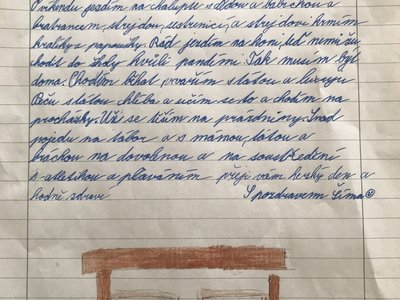 O víkendu jezdím na chalupu s dědou a babičkou a
bratrancem, strejdou, sestřenicí, a strejdovi krmím
králíky a papoušky. Rád jezdím na koni, teď nemůžu
chodit do školy kvůli pandemi. Tak musím být
doma. Chodím běhat povařím s tátou a
Peču s tátou chleba a učím se to a chodím na
procházky. Už se těším na prázdniny. Snad
pojedu na tábor a s mámou, tátou a
bráchou na dovolenou a na soustředění
s atletikou a plaváním přeji vám hezký den a
hodně zdraví S pozdravem Šíma☺